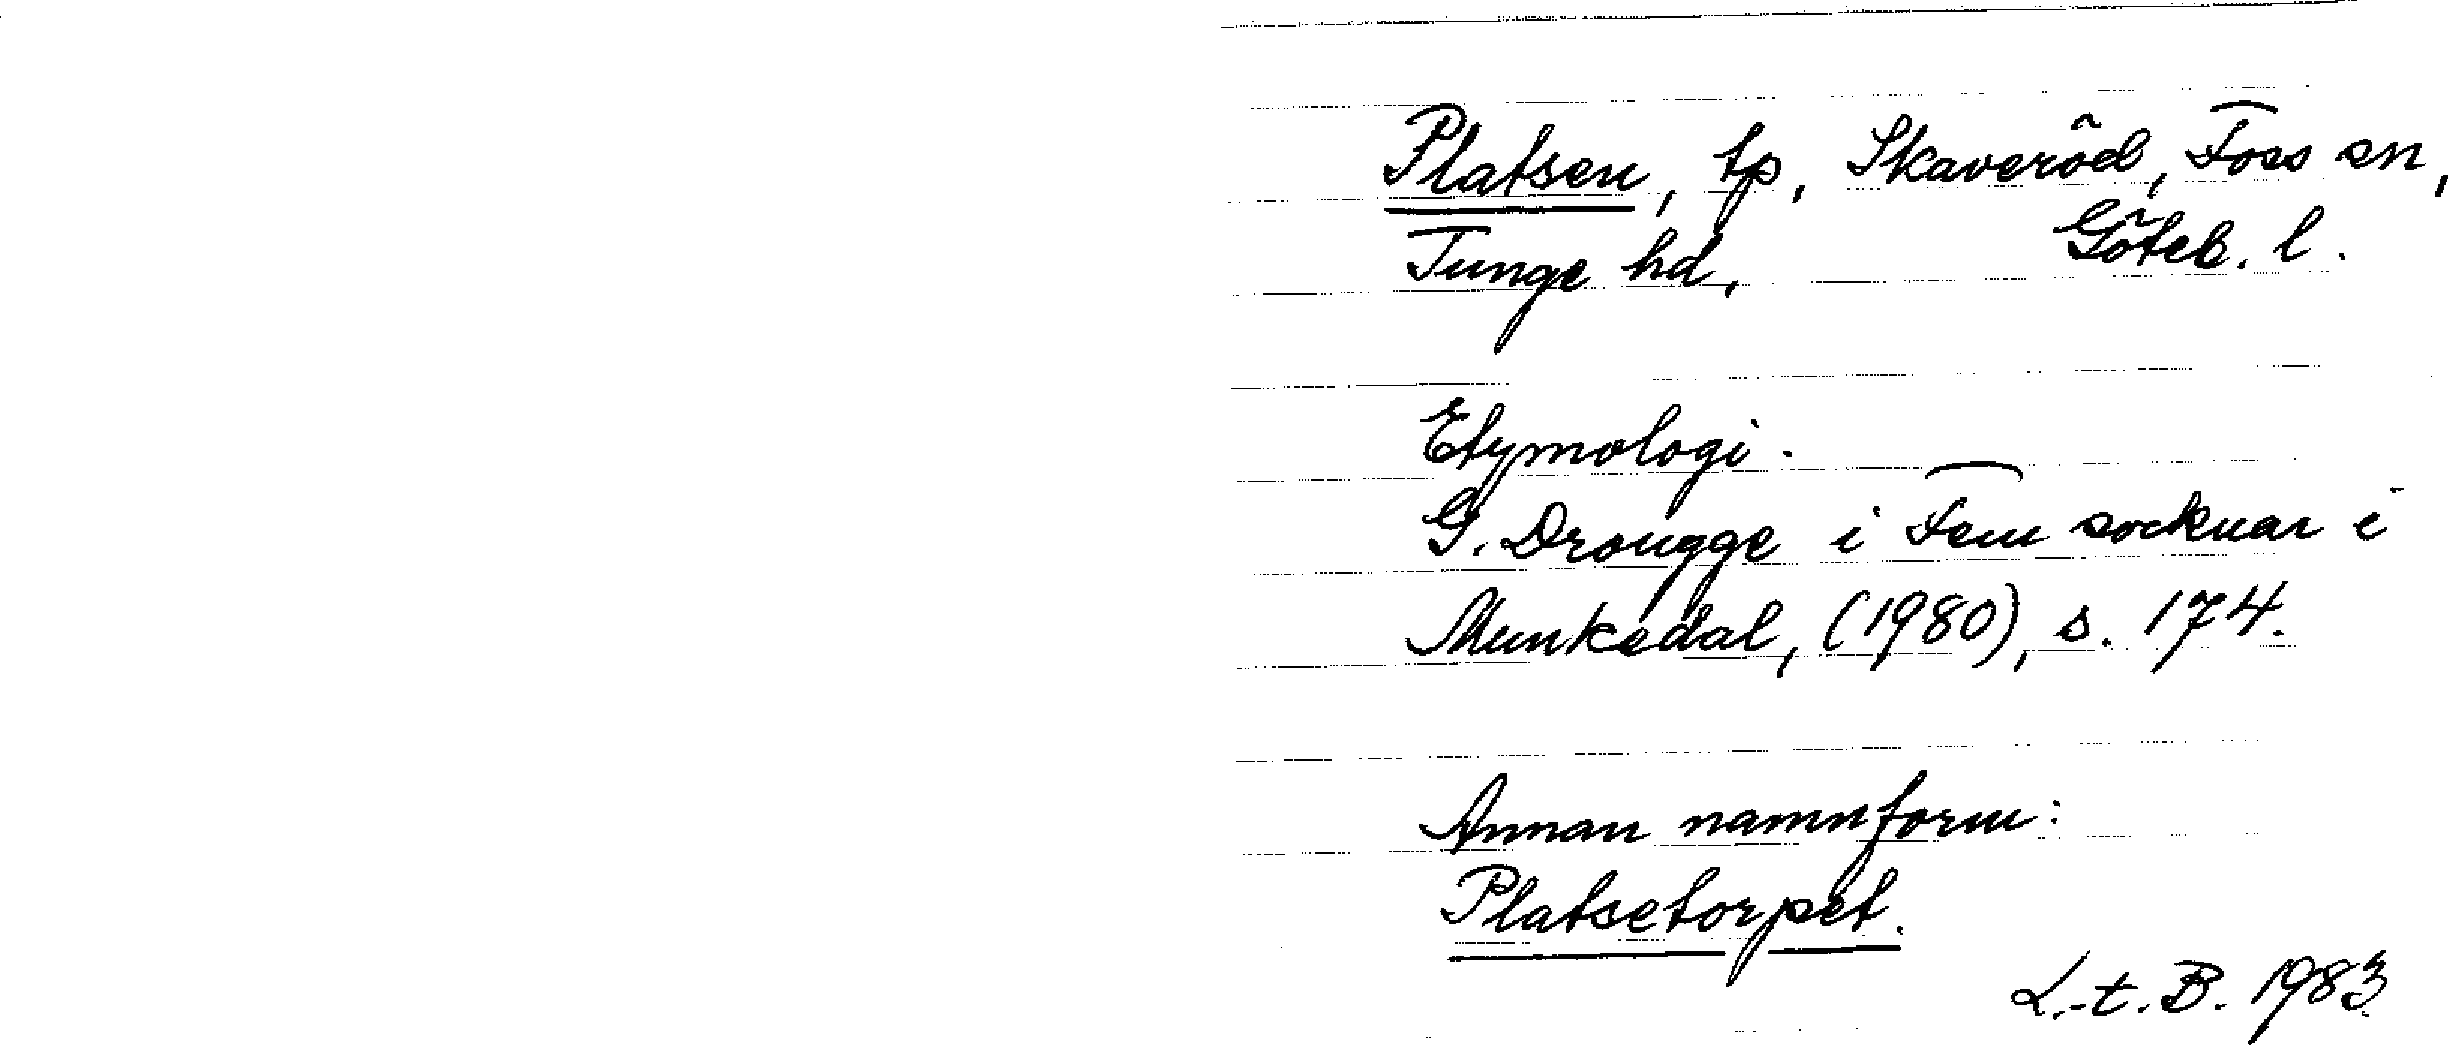 Platsen, tp, Skaveröd, Foss sn,
Tunge hd, Göteb. l.
Etymologi.
G. Drougge i Fem socknar i
Munkedal, (1980), s. 174.
Annan namnform:
Platsetorpet.
L.t.B. 1983